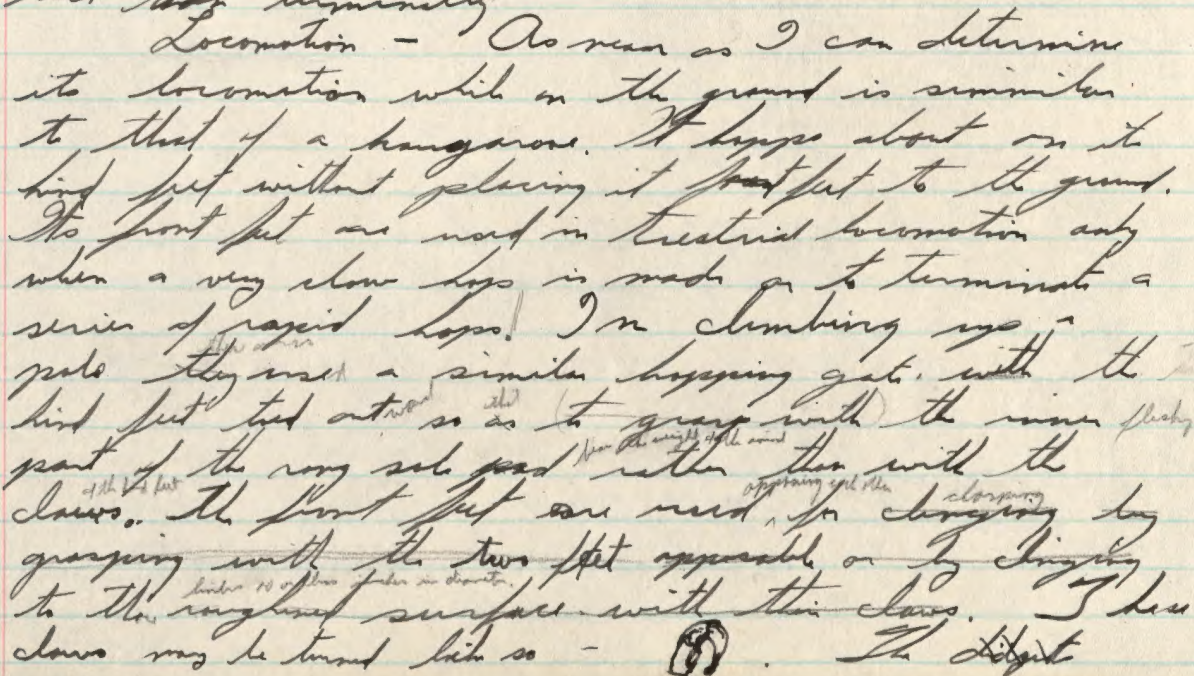 Locomotion - As near as I can determine
its locomotion while on the ground is simmilar
to that of a kangaroo. It hopps about on its
hind feet without placing it front feet to the ground.
Its front feet are used in trestrial locomotion only
when a very slow hop is made or to terminate a
series of rapid hops. In climbing up a
pole they use a similar hopping gate. with the
hind feet toed outward so as that (to grasp with) the inner fleshy
bear the weight of the animal
part of the sole pad rather than with the
of the hind feet opposing each other clasping
claws. The front feet are used for clinging by
grasping with the two feet apposable or by clinging
to the roughened surface with their claws. These
claws may be turned like so - The